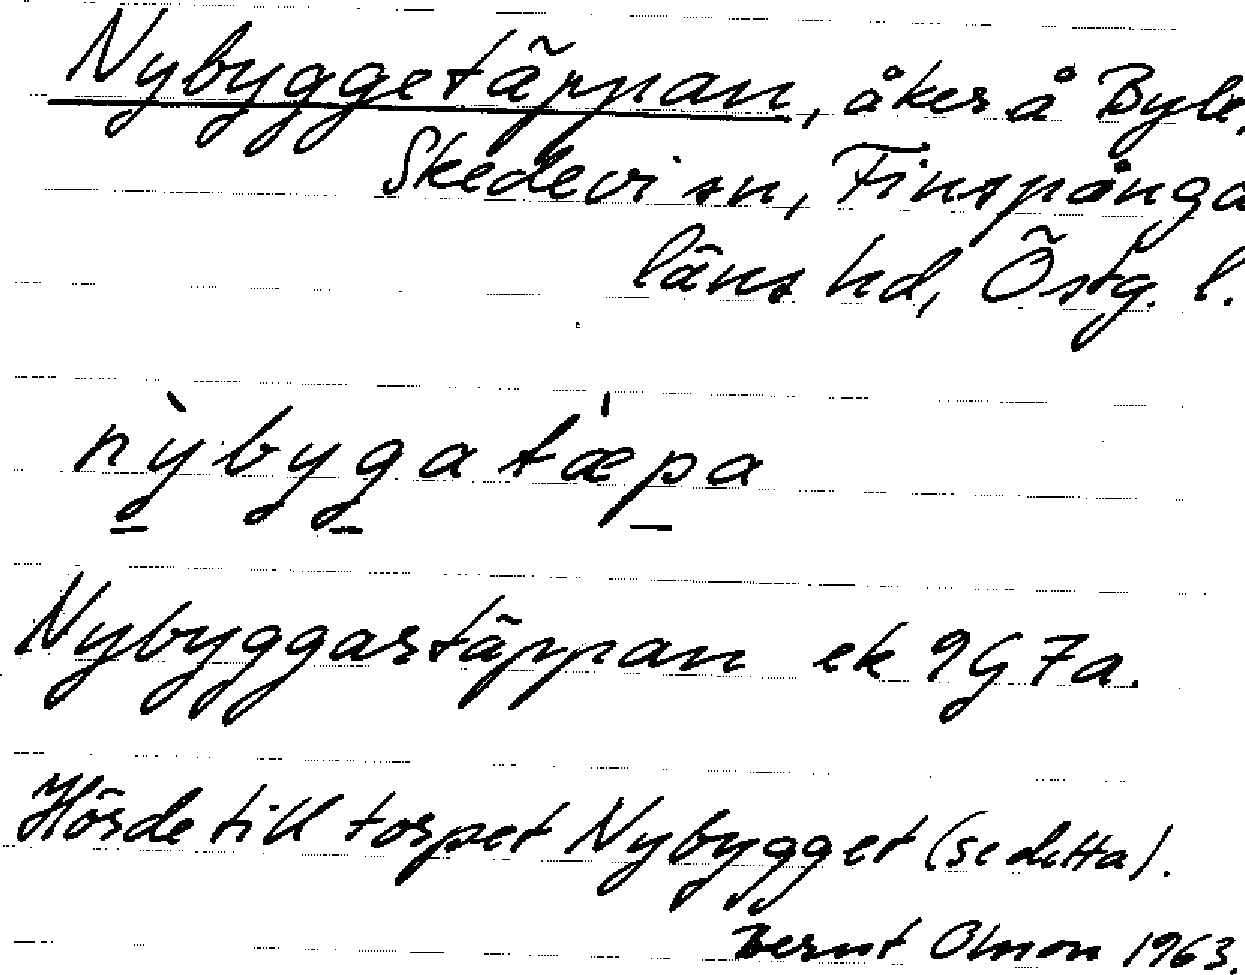 Nybyggetäppan, åker å Byle,
Skedevi sn, Finspånga
läns hd, Östg. l.
nỳbygatæ̍pa
Nybyggartäppan ek 9G7a.
Hörde till torpet Nybygget (se detta).
Bernt Olsson 1963.